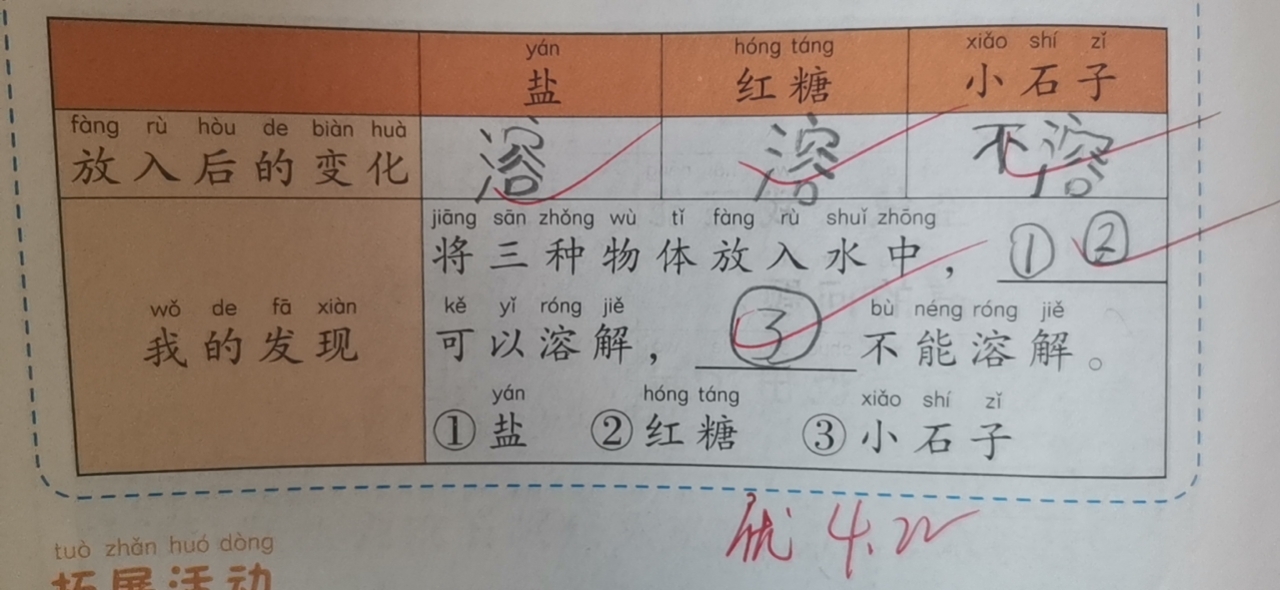 yán hóng táng xiǎo shí zǐ
盐 红糖 小石子
fàng rù hòu de biàn huà
放入后的变化 溶 溶 不溶
jiāng sān zhǒng wù tǐ fàng rù shuǐ zhōng
将三种物体放入水中，①②
wǒ de fā xiàn
我的发现
kě yǐ róng jiě bù néng róng jiě
可以溶解，③不能溶解。
yán hóng táng xiǎo shí zǐ
①盐 ②红糖 ③小石子
优 4.22
tuò zhǎn huó dòng
拓展活动